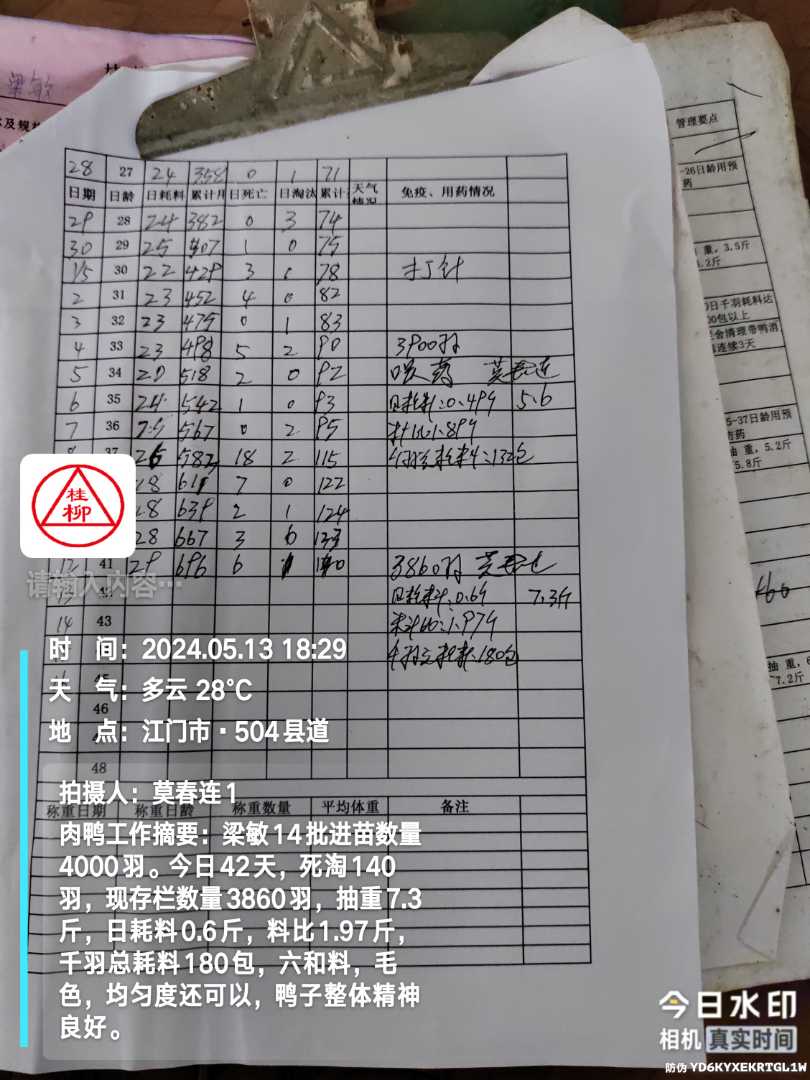 梁敏
管理要点
28 27 24 358 0 1 71
日期 日龄 日耗料 累计用 日死亡 日淘汰 累计 天气情况 免疫、用药情况
29 28 24 382 0 3 74
30 29 25 407 1 0 75
1/5 30 22 429 3 0 78 打针
2 31 23 452 4 0 82
3 32 23 475 0 1 83
4 33 23 498 5 2 90 3900羽
5 34 20 518 2 0 92 喂药 莫春连
6 35 24 542 1 0 93 日耗料:0.49斤 5.6
7 36 25 567 0 2 95 料比:1.89斤
8 37 26 582 18 2 115 千羽总耗料:132包
28 611 7 0 122
28 639 2 1 124
28 667 3 6 133
12 41 29 696 6 1 140 3860羽 莫春连
13 42 日耗料:0.6斤 7.3斤
14 43 料比:1.97斤
千羽总耗料:180包
45
46
48
称重日期 称重日龄 称重数量 平均体重 备注
-26日龄用预
药
重，3.5斤
.2斤
日千羽耗料达
00包以上
舍清理带鸭消
连续3天
5-37日龄用预
药
抽重，5.2斤
5.8斤
抽重，6
7.2斤
桂柳
请输入内容…
时 间：2024.05.13 18:29
天 气：多云 28℃
地 点：江门市·504县道
拍摄人：莫春连1
肉鸭工作摘要：梁敏14批进苗数量
4000羽。今日42天，死淘140
羽，现存栏数量3860羽，抽重7.3
斤，日耗料0.6斤，料比1.97斤，
千羽总耗料180包，六和料，毛
色，均匀度还可以，鸭子整体精神
良好。
今日水印
相机 真实时间
防伪 YD6KYXEKRTGL1W